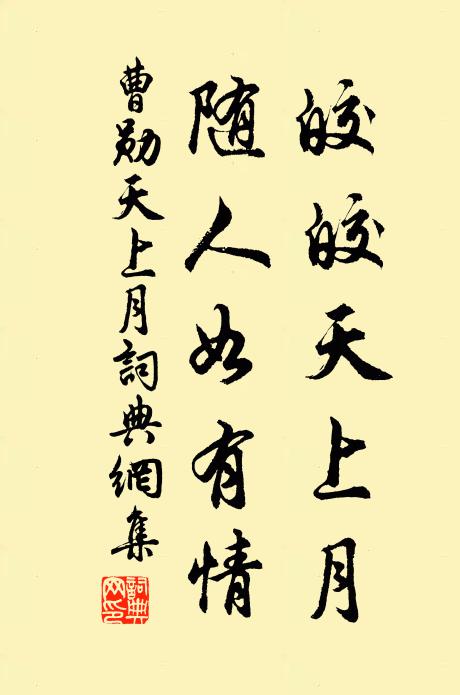 皎皎天上月
随人如有情
曹勛天上月詞典網集
詞典
网印